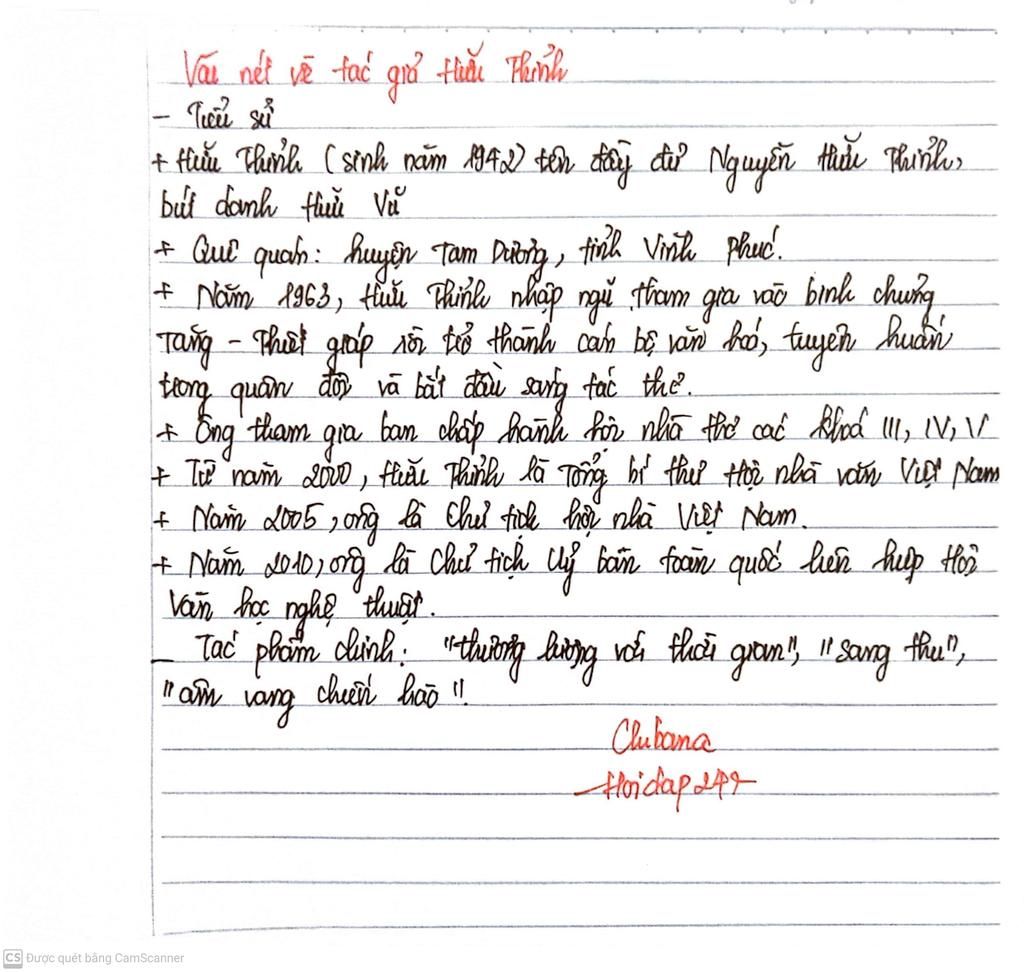 Vài nét về tác giả Hữu Thỉnh
- Tiểu sử
+ Hữu Thỉnh (sinh năm 1942) tên đầy đủ Nguyễn Hữu Thỉnh,
bút danh Hữu Vũ
+ Quê quán: huyện Tam Dương, tỉnh Vĩnh Phúc.
+ Năm 1963, Hữu Thỉnh nhập ngũ tham gia vào binh chủng
Tăng - Thiết giáp rồi trở thành cán bộ văn hoá, tuyên huấn
trong quân đội và bắt đầu sáng tác thơ.
+ Ông tham gia ban chấp hành hội nhà thơ các khoá III, IV, V
+ Từ năm 2000, Hữu Thỉnh là Tổng bí thư Hội nhà văn Việt Nam
+ Năm 2005, ông là Chủ tịch hội nhà Việt Nam.
+ Năm 2010, ông là Chủ tịch Uỷ ban toàn quốc liên hiệp Hội
Văn học nghệ thuật.
- Tác phẩm chính: "thương lượng với thời gian", "sang thu",
"âm vang chiến hào".
Clubana
Hoidap247
CS Được quét bằng CamScanner